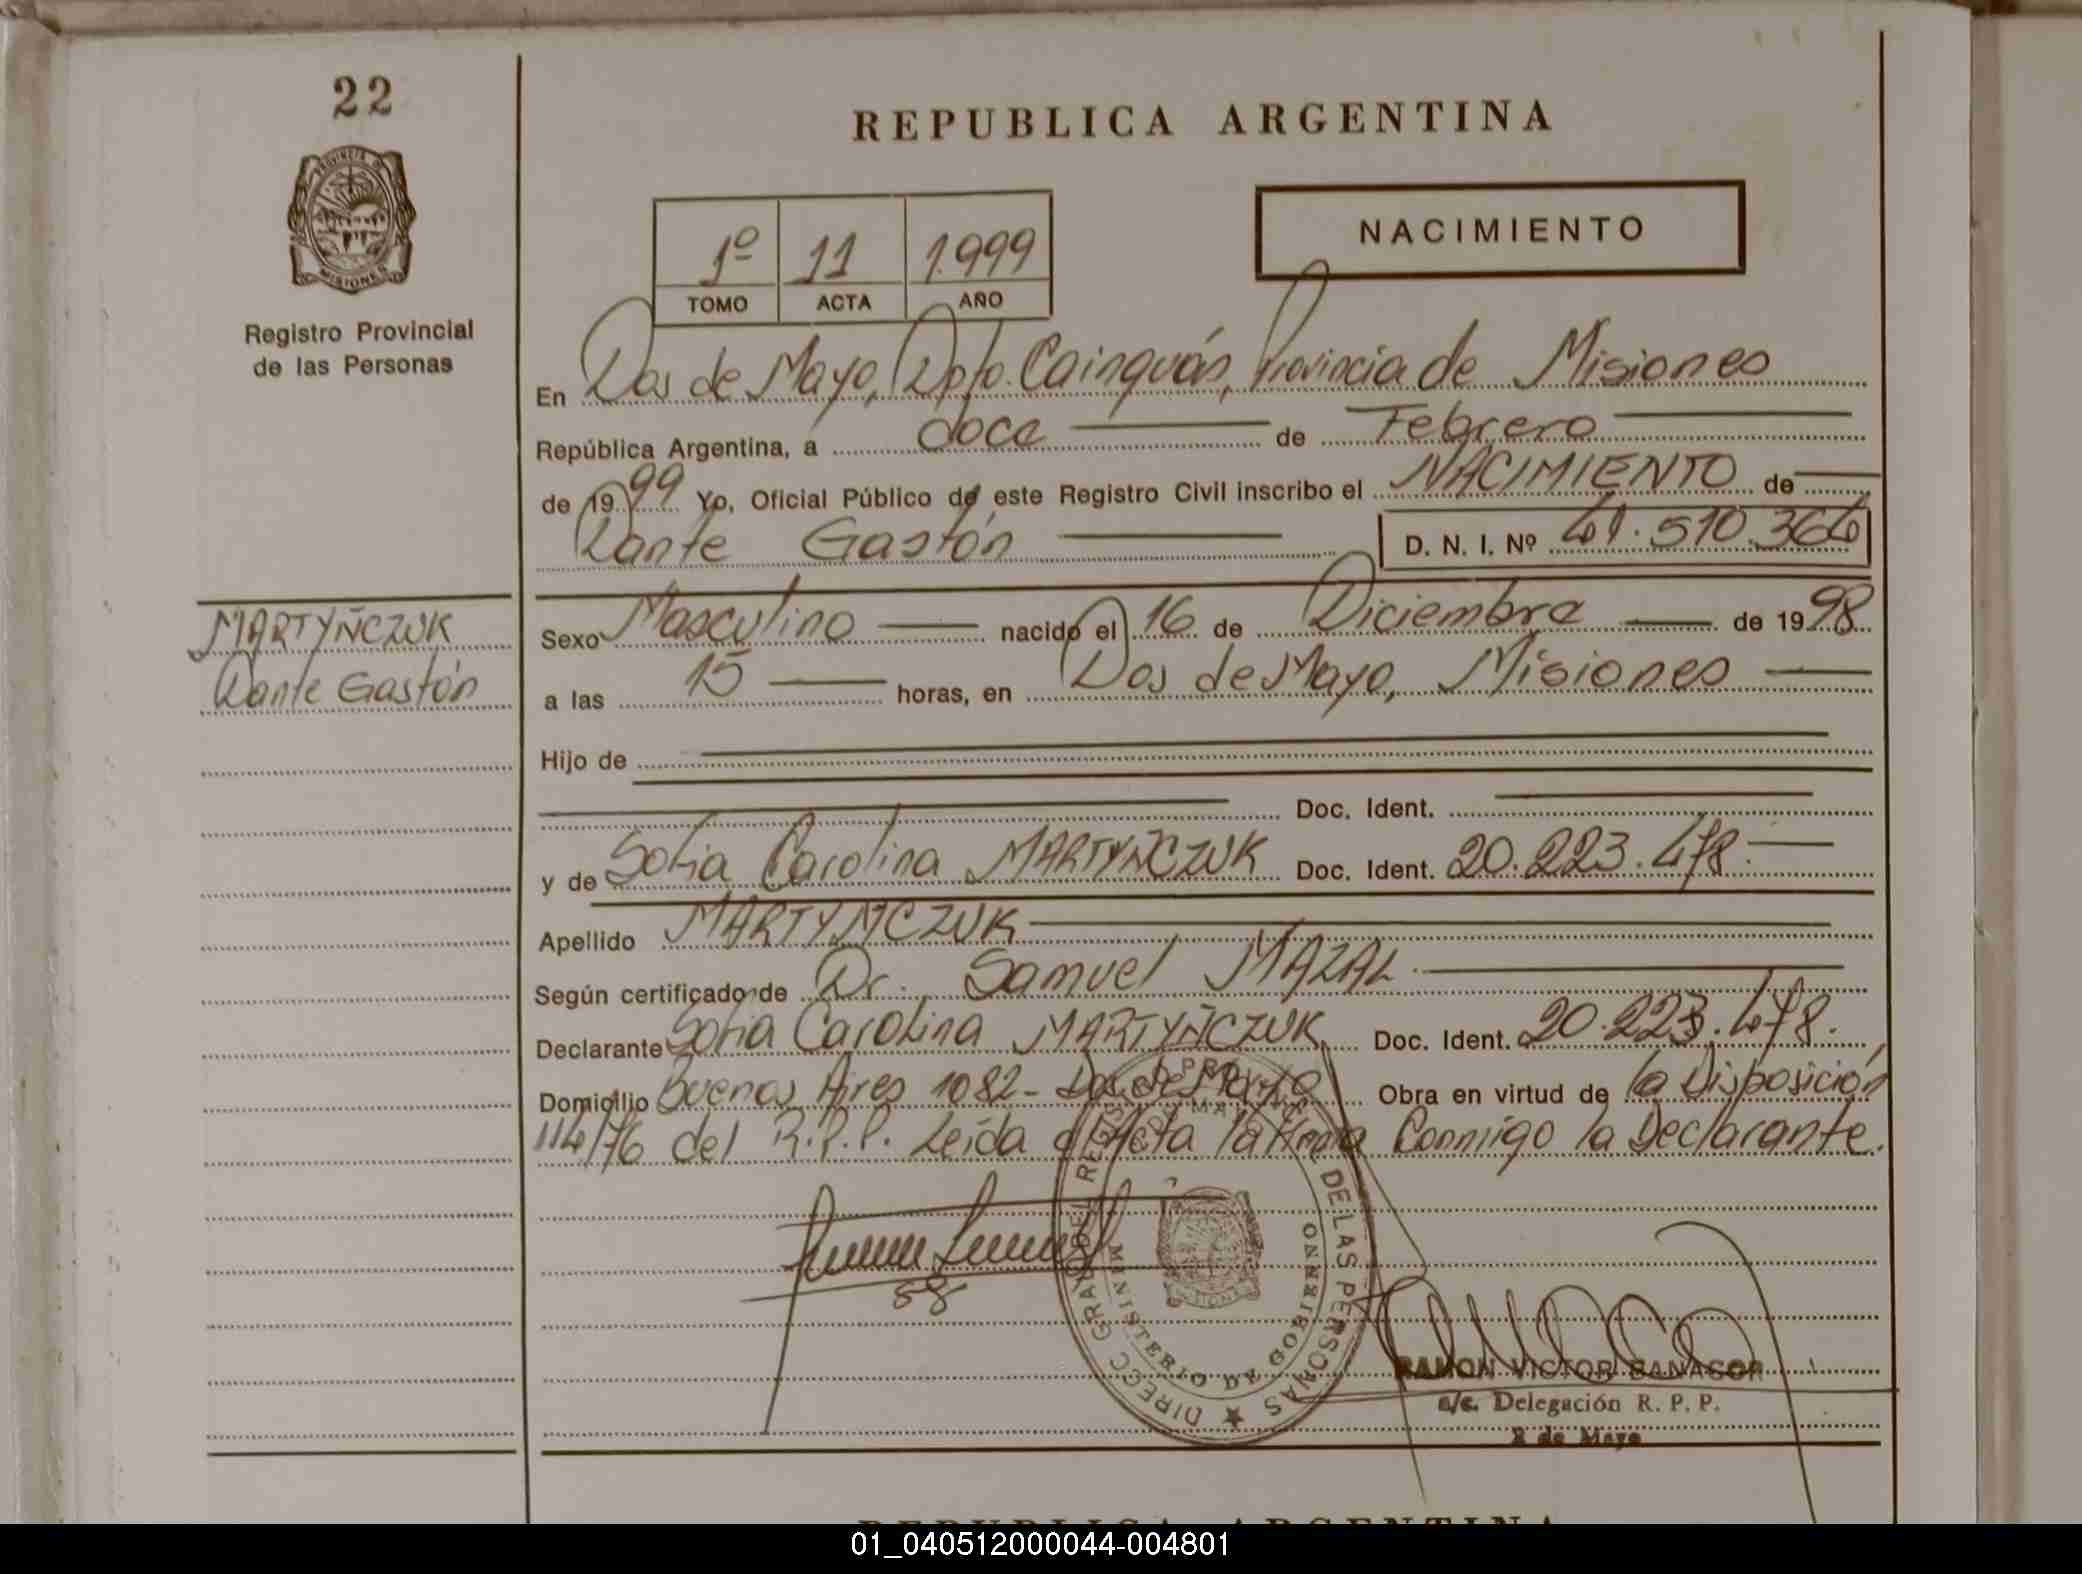 22
REPUBLICA ARGENTINA
PROVINCIA DE
MISIONES
Registro Provincial
de las Personas
NACIMIENTO
1º 11 1.999
TOMO ACTA AÑO
En Dos de Mayo, Dpto. Cainguás, Provincia de Misiones
República Argentina, a doce de Febrero
de 1999 Yo, Oficial Público de este Registro Civil inscribo el NACIMIENTO de
Dante Gastón D. N. I. Nº 41.510.364
MARTYÑCZUK
Dante Gastón
Sexo Masculino nacido el 16 de Diciembre de 1998
a las 15 horas, en Dos de Mayo, Misiones
Hijo de
Doc. Ident.
y de Sofia Carolina MARTYÑCZUK Doc. Ident. 20.223.478.
Apellido MARTYÑCZUK
Según certificado de Dr. Samuel MAZAL.
Declarante Sofia Carolina MARTYÑCZUK Doc. Ident. 20.223.478.
Domicilio Buenos Aires 1082- Dos de Mayo Obra en virtud de la Disposición
114/76 del R.P.P. Leída el Acta la firma Conmigo la Declarante.
DIRECC GRAL DEL REG PROV DE LAS PERSONAS
MINISTERIO DE GOBIERNO
RAMON VICTOR BANACOR
a/c. Delegación R. P. P.
2 de Mayo
REPUBLICA ARGENTINA
01_040512000044-004801